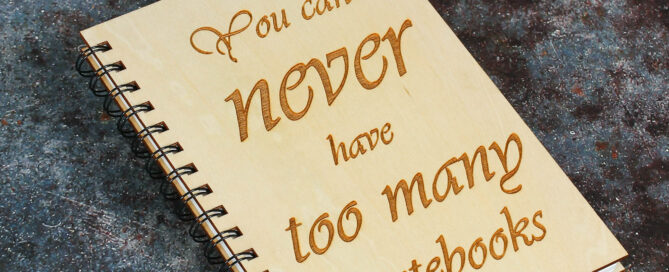 You can
never
have
too many
notebooks